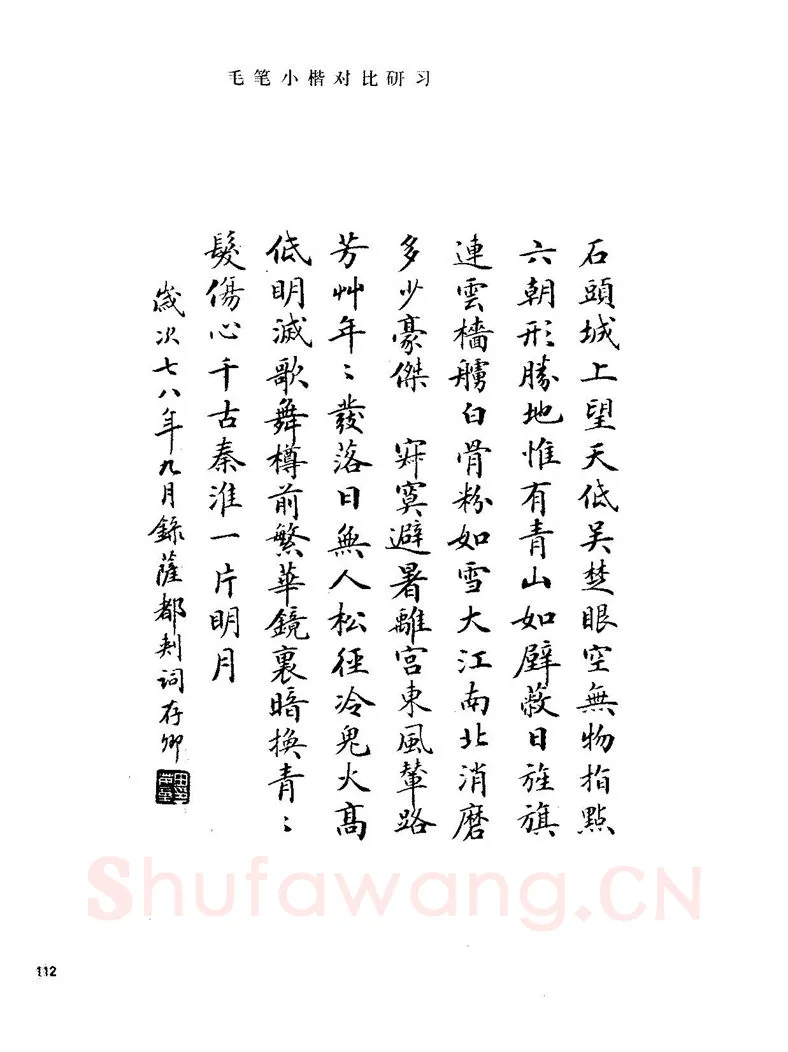 毛笔小楷对比研习
石頭城上望天低吴楚眼空無物指點
六朝形勝地惟有青山如壁蔽日旌旗
連雲檣艣白骨粉如雪大江南北消磨
多少豪傑 寂寞避暑離宫東風輦路
芳艸年〻發落日無人松徑冷鬼火高
低明滅歌舞樽前繁華鏡裏暗换青〻
髮傷心千古秦淮一片明月
歲次七八年九月錄薩都剌詞存卿
Shufawang.CN
112